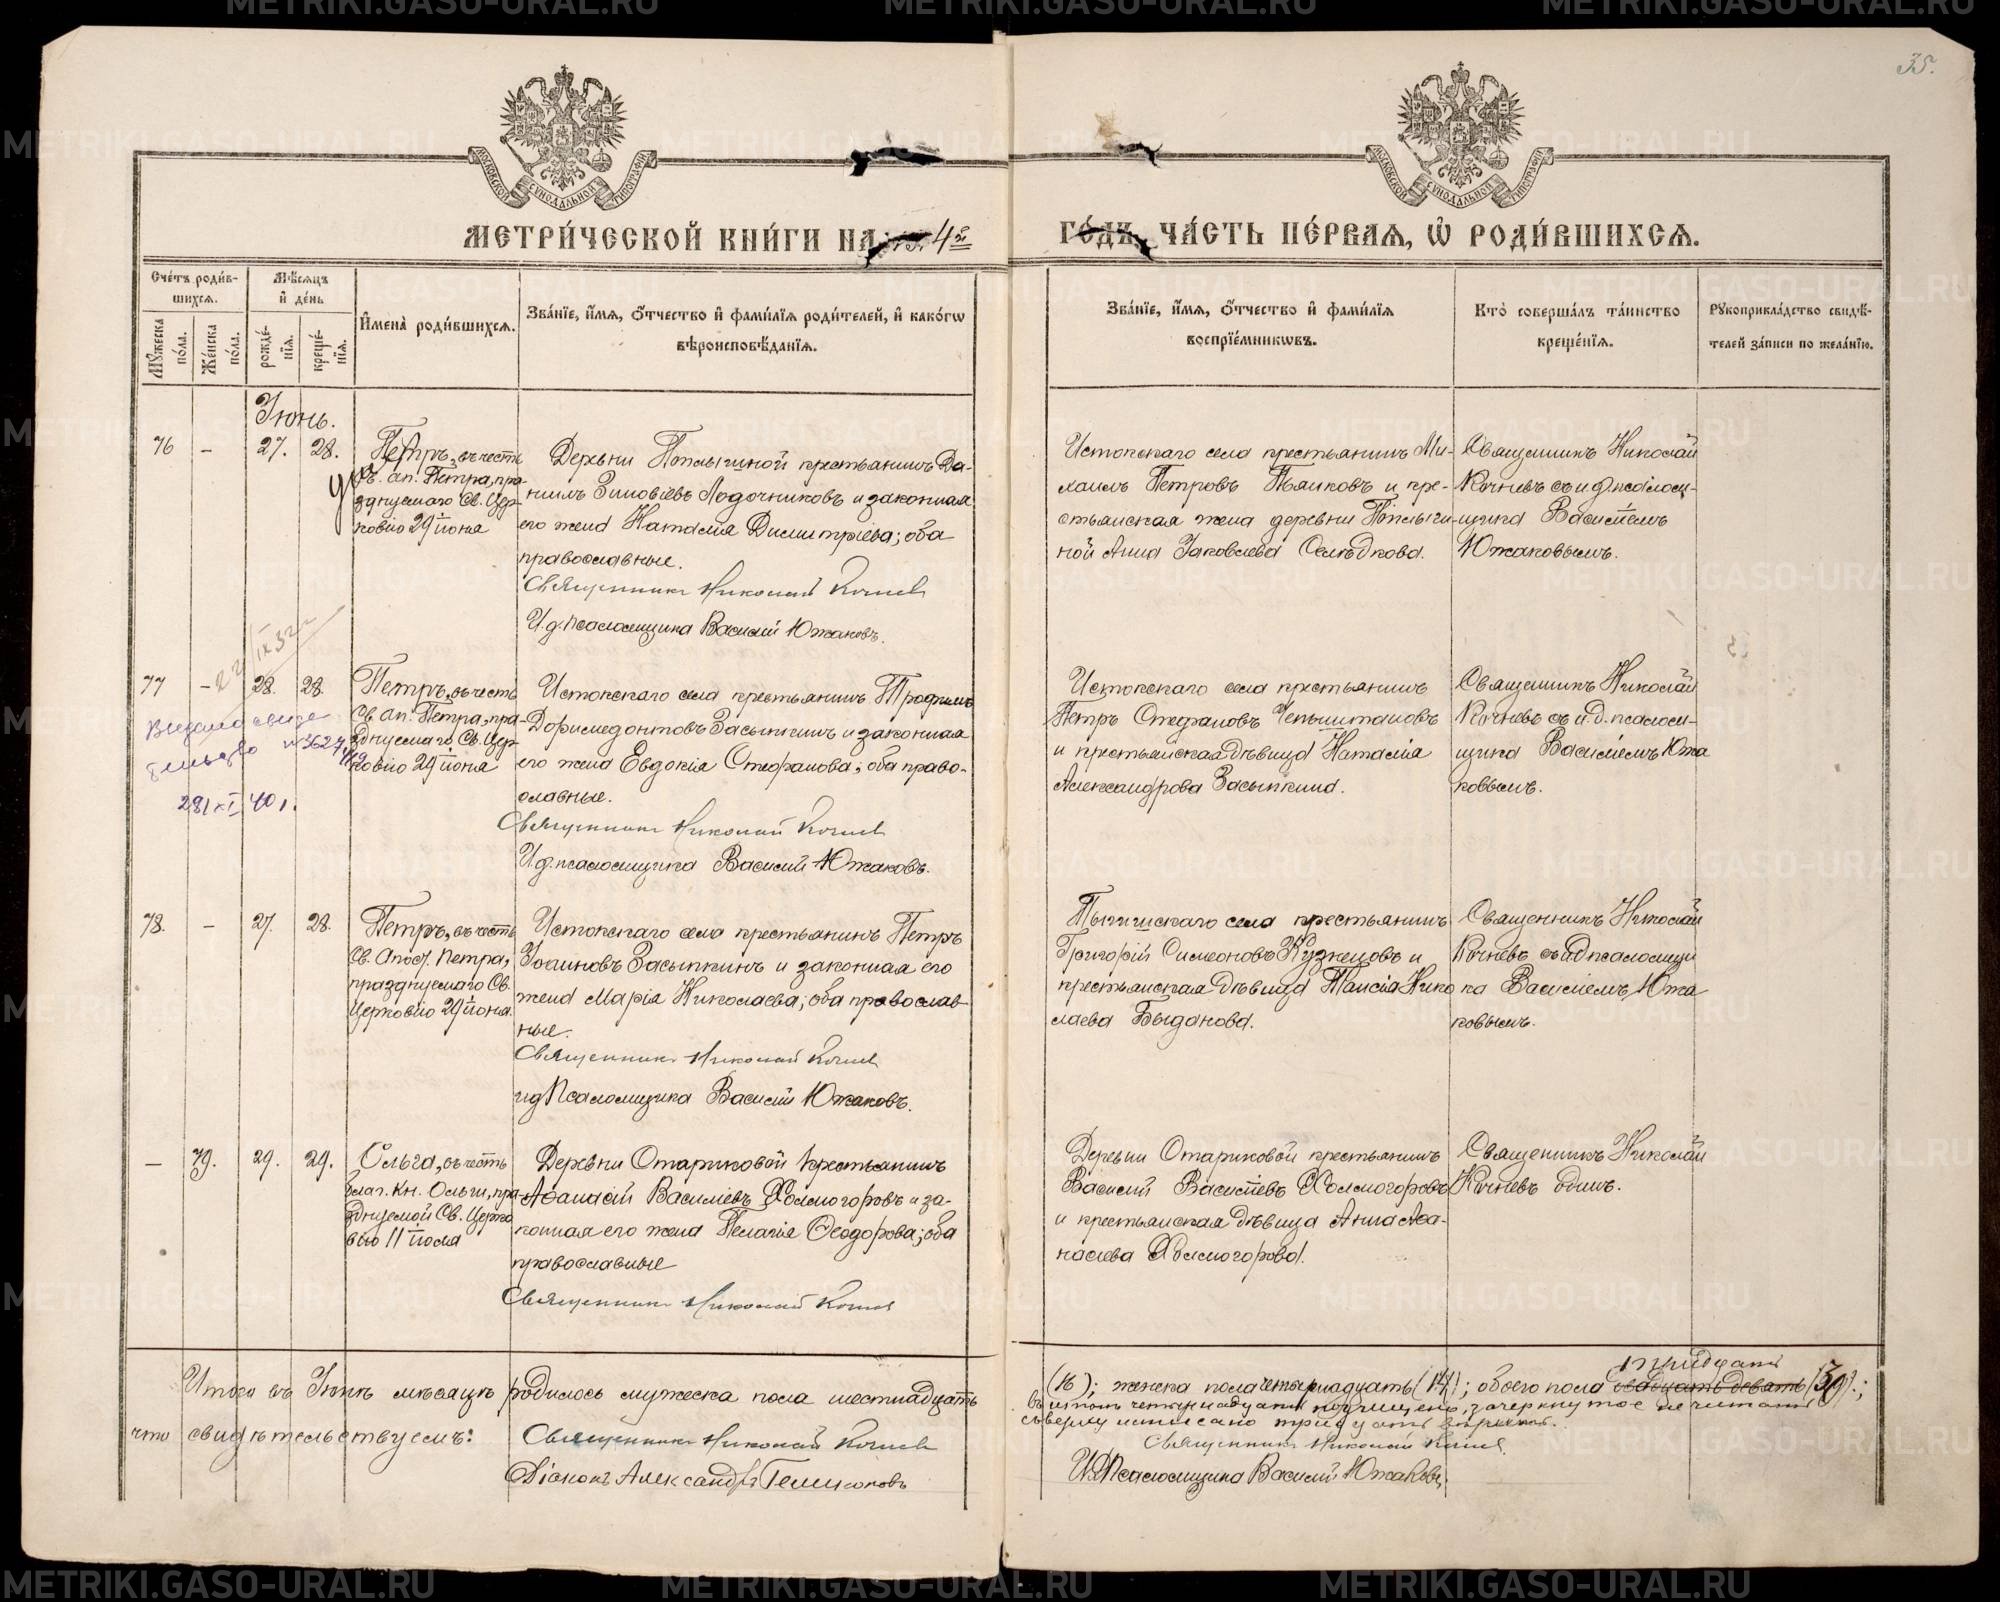 35.
МОСКОВСКОЙ СѴНОДАЛЬНОЙ ТИПОГРАФІИ
МОСКОВСКОЙ СѴНОДАЛЬНОЙ ТИПОГРАФІИ
МЕТРИ́ЧЕСКОЙ КНИ́ГИ НА 4й ГО́ДЪ, ЧА́СТЬ ПЕ́РВАЯ, Ѡ҆ РОДИ́ВШИХСЯ.
Сче́тъ роди́в-
шихся.
Мѣ́сяцъ
и҆ де́нь
Мꙋжеска по́ла.
Же́нска по́ла.
рожде́-
нїя.
креще́-
нїя.
И҆мена̀ роди́вшихся.
Зва́нїе, и҆́мя, ѻ҆́тчество и҆ фами́лїя роди́телей, и҆ како́гѡ
вѣроисповѣ́данїя.
Зва́нїе, и҆́мя, ѻ҆́тчество и҆ фами́лїя
воспрїе́мникѡвъ.
Кто̀ соверша́лъ та́инство
креще́нїя.
Рꙋкоприкла́дство свидѣ́-
телей за́писи по жела́нїю.
Іюнь.
76 - 27. 28.
Петръ, въ честь
Св. ап. Петра, пра-
зднуемаго Св. Цер-
ковію 29 іюня
ум
Деревни крестьянинъ Да-
ніилъ Зиновіевъ Лодочниковъ и законная
его жена Наталія Димитріева; оба
православные.
Священникъ Николай Кочнев
И.д. псаломщика Василій Южаковъ.
Истокскаго села крестьянинъ Ми-
хаилъ Петровъ Пьянковъ и кре-
стьянская жена деревни
ной Анна Яковлева
Священникъ Николай
Кочневъ съ и.д. псалом-
щика Василіемъ
Южаковымъ.
77 - 28. 28.
Петръ, въ честь
Св. ап. Петра, пра-
зднуемаго Св. Цер-
ковію 29 іюня
Выдано свиде
тельство № 3627
28/XI 40 г.
Истокскаго села крестьянинъ Трофимъ
Доримедонтовъ Засыпкинъ и законная
его жена Евдокія Стефанова; оба право-
славные.
Священникъ Николай Кочнев
И.д. псаломщика Василій Южаковъ.
Истокскаго села крестьянинъ
Петръ Стефановъ
и крестьянская дѣвица Наталія
Александрова Засыпкина.
Священникъ Николай
Кочневъ съ и.д. псалом-
щика Василіемъ Южа
ковымъ.
78. - 27. 28.
Петръ, въ честь
Св. Апос. Петра,
празднуемаго Св.
Церковію 29 іюня.
Истокскаго села крестьянинъ Петръ
Іоанновъ Засыпкинъ и законная его
жена Марія Николаева; оба православ-
ные.
Священникъ Николай Кочнев
ид Псаломщика Василій Южаковъ.
села крестьянинъ
Григорій Симеоновъ Кузнецовъ и
крестьянская дѣвица Таисія Нико
лаева Быданова.
Священникъ Николай
Кочневъ съ ид псаломщи
ка Василіемъ Южа
ковымъ.
- 79. 29. 29.
Ольга, въ честь
благ. Кн. Ольги, пра
зднуемой Св. Церко
вью 11 іюля
Деревни Стариковой крестьянинъ
Аѳанасій Василіевъ Холмогоровъ и за-
конная его жена Пелагія Ѳеодорова; оба
православные
Священникъ Николай Кочнев
Деревни Стариковой крестьянинъ
Василій Василіевъ Холмогоровъ
и крестьянская дѣвица Анна Аѳа-
насіева Холмогорова.
Священникъ Николай
Кочневъ одинъ.
Итого въ Іюнѣ мѣсяцѣ родилось мужеска пола шестнадцать
(16); женска пола четырнадцать (14); обоего пола двадцать девять тридцать (30).;
четырнадцать подчищено, зачеркнутое не читать
сверху написано тридцать
что свидѣтельствуемъ: Священникъ Николай Кочнев
Діаконъ Александръ
Священникъ Николай Кочнев.
И.д. Псаломщика Василій Южаковъ.
METRIKI.GASO-URAL.RU